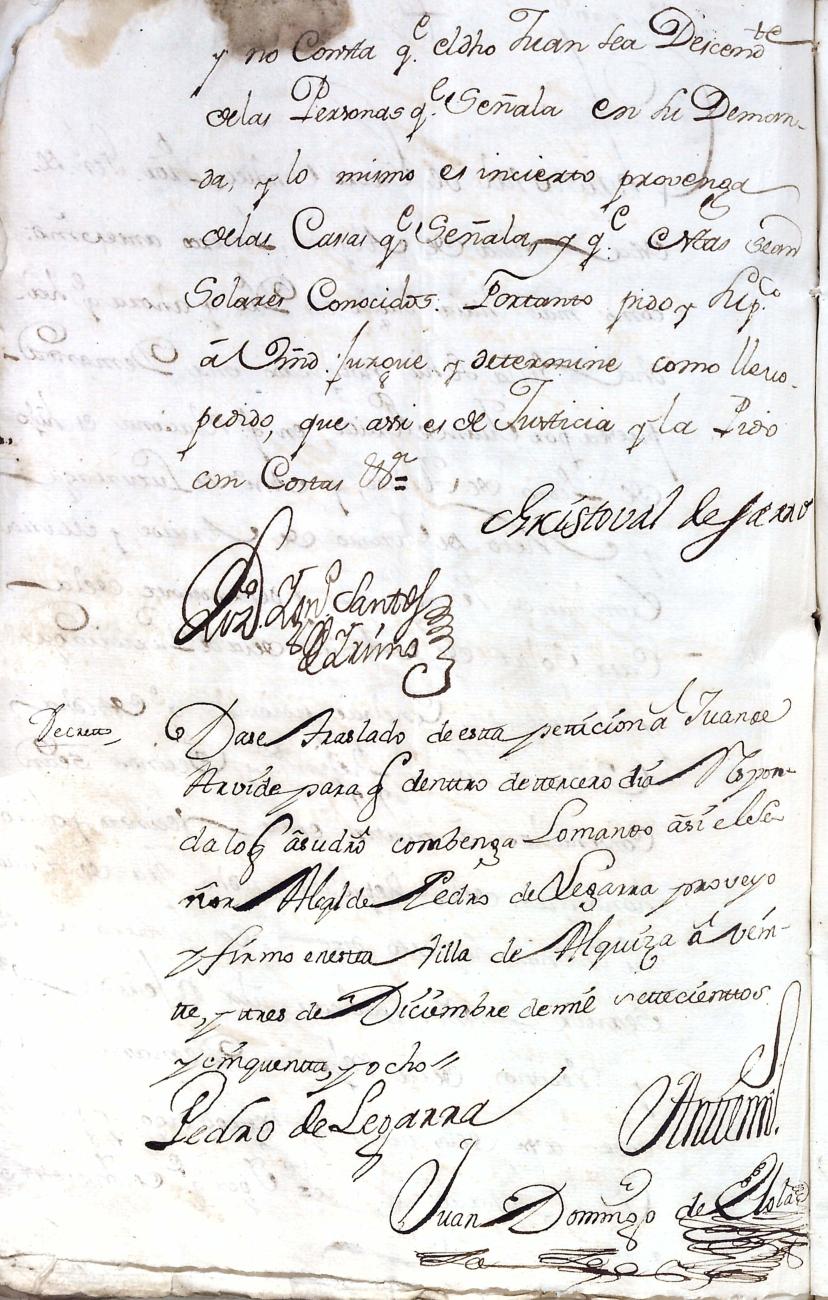 y no Consta q.e el dho Juan sea Descend.te
de las Personas q.e Señala en su Deman-
da, y lo mismo es incierto provenga
de las Casas q.e Señala, y q.e estas sean
Solares Conocidos. Portanto pido y sup.co
â Vmd. juzgue y determine como llevo
pedido, que assi es de Justicia y la Pido
con Costas &.a =
Christoval de
Santos
Decretto,
Dase traslado de esta peticion â Juan de
Arvide para q dentro de tercero dia Respon-
da lo q â su dro combenga Lo mando âsi el Se-
ñor Alcalde Pedro de Legarra proveyo
y firmo en esta Villa de Alquiza â vein-
tte, y tres de Diciembre de mil settecienttos
y cinquentta, y ocho //
Pedro de Legarra
Antemi.
Juan Domingo de